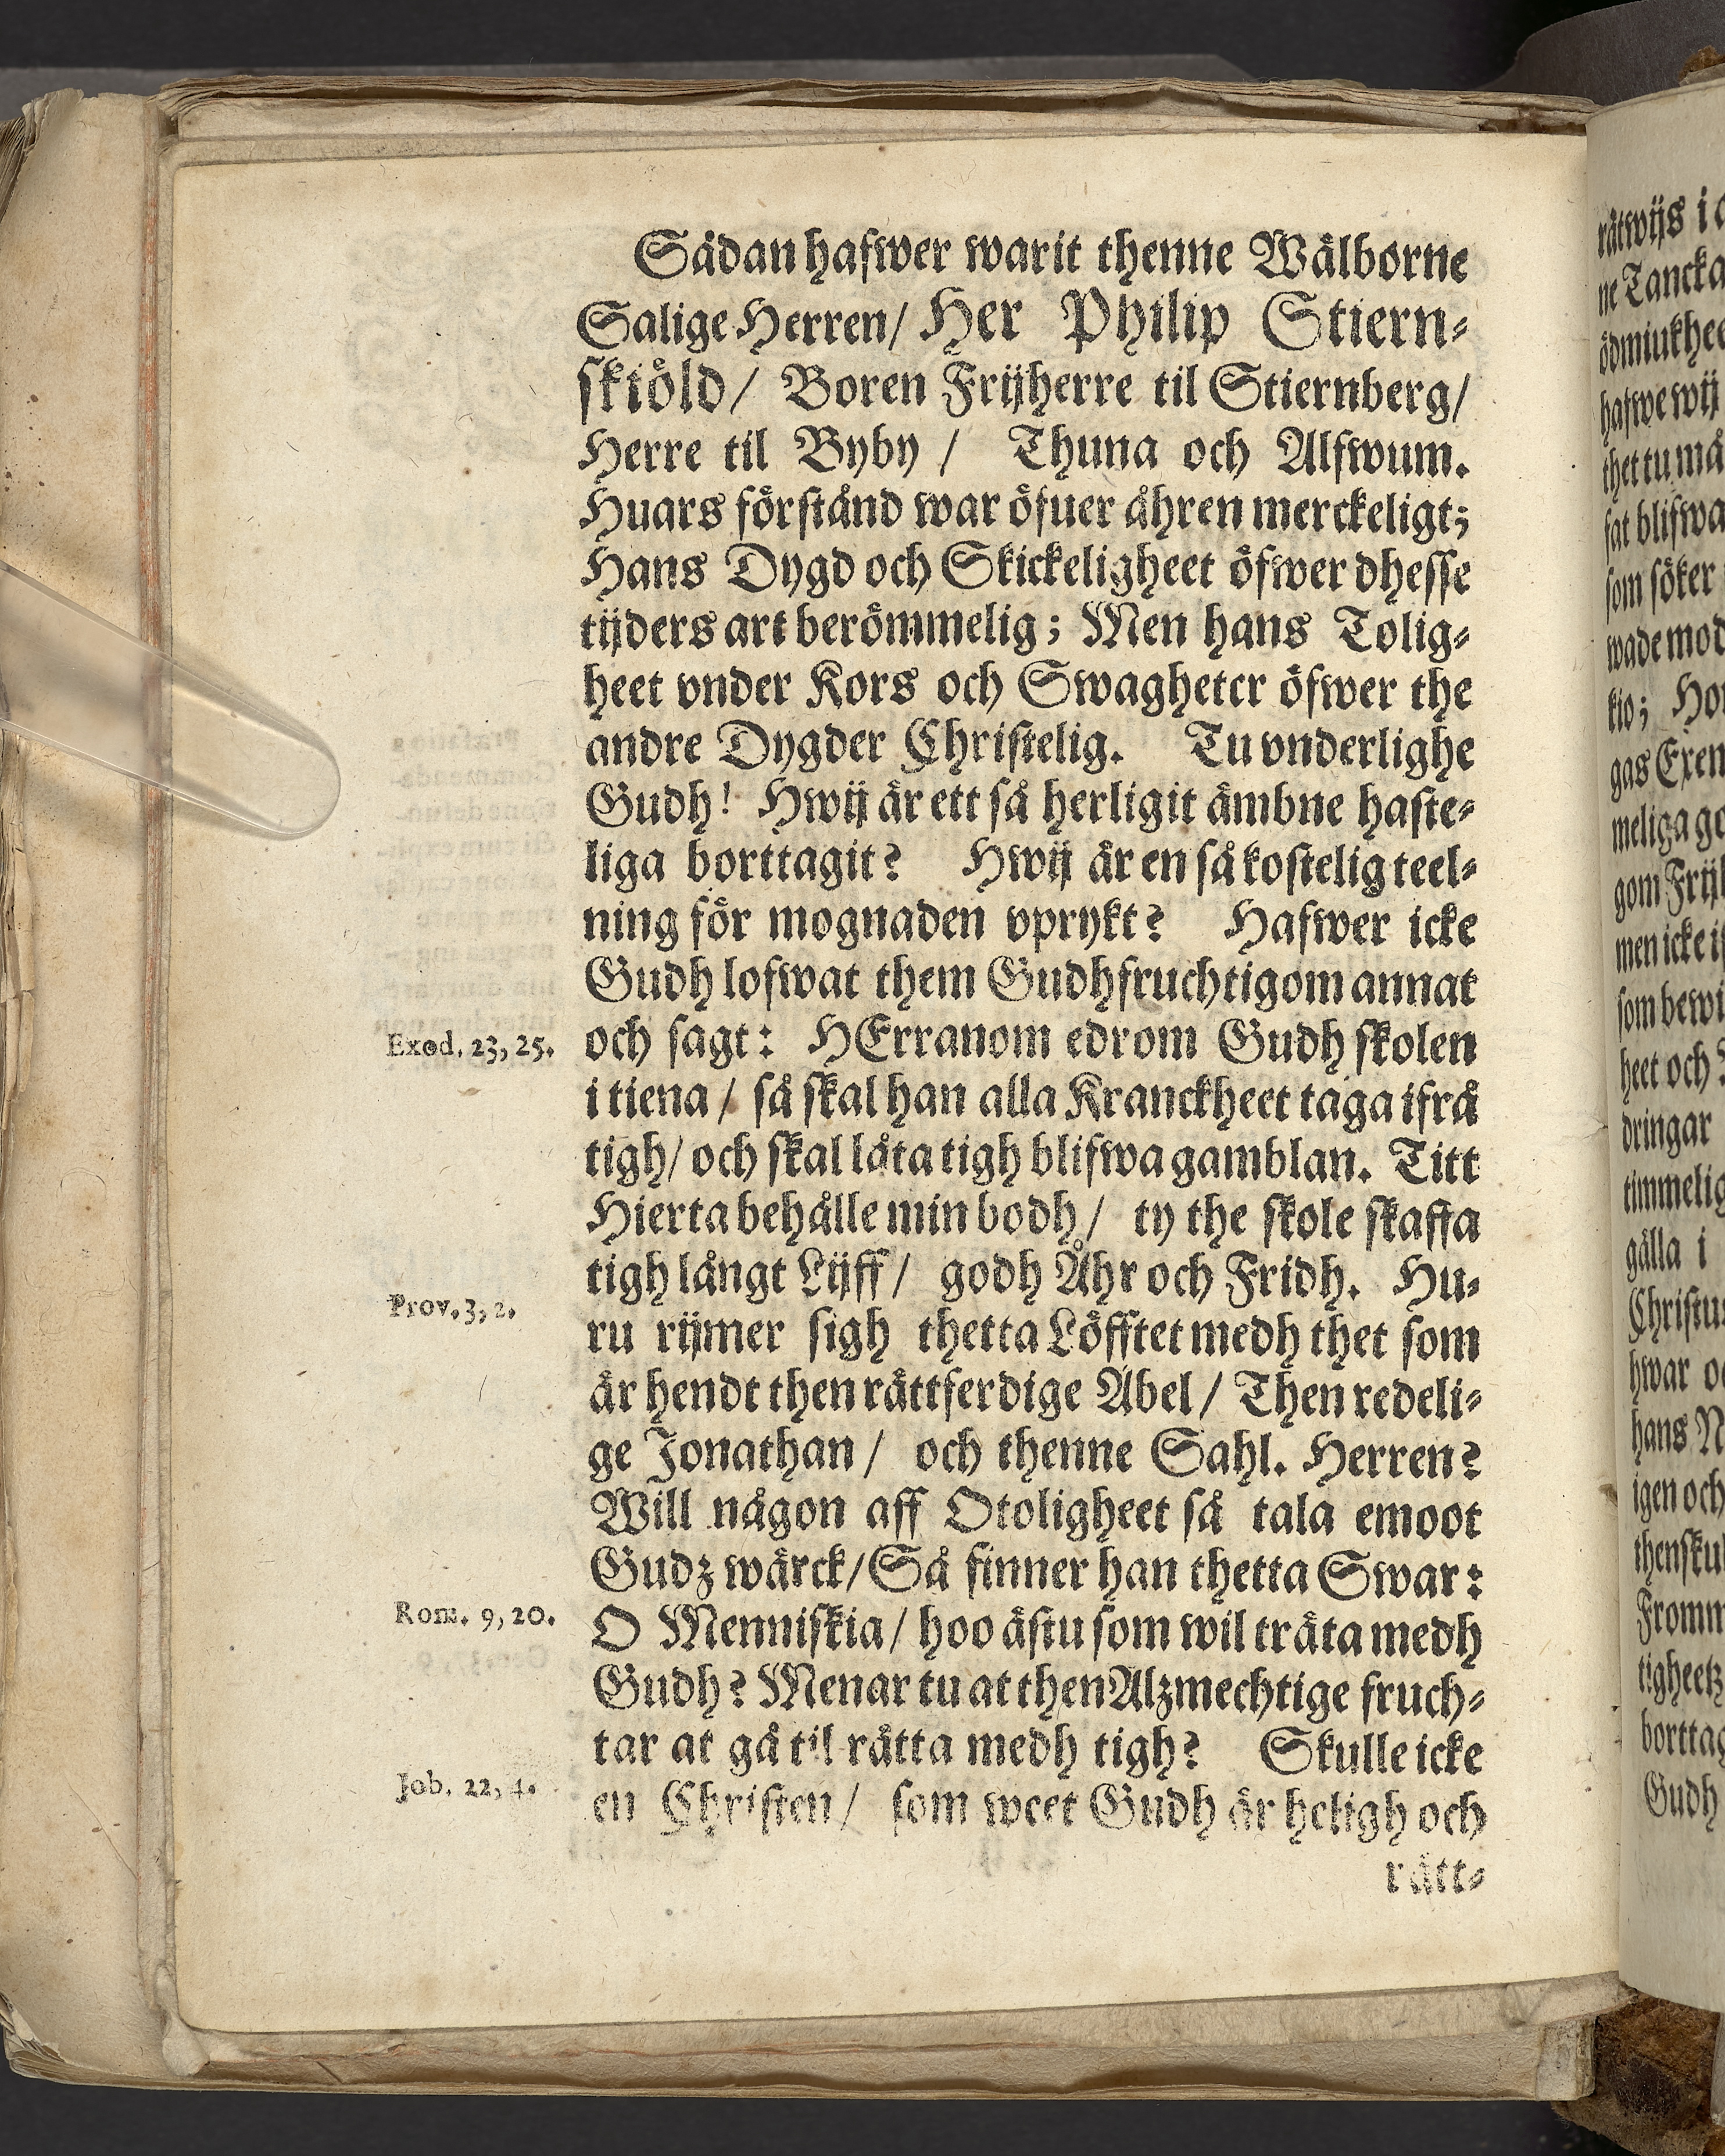 Sådan hafwer warit thenne Wälborne
Salige Herren/ Her Philip Stiern-
skiöld/ Boren Frijherre til Stiernberg/
Herre til Byby / Thuna och Alfwum.
Huars förstånd war öfuer åhren merckeligt;
Hans Dygd och Skickeligheet öfwer dhesse
tijders art berömmelig; Men hans Tolig-
heet vnder Kors och Swagheter öfwer the
andre Dygder Christelig. Tu vnderlighe
Gudh! Hwij är ett så herligit ämbne haste-
liga borttagit? Hwij är en så kostelig teel-
ning för mognaden vprykt? Hafwer icke
Gudh lofwat them Gudhfruchtigom annat
Exod. 23, 25. och sagt: HErranom edrom Gudh skolen
i tiena / så skal han alla Kranckheet taga ifrå
tigh/ och skal låta tigh blifwa gamblan. Titt
Hierta behålle min bodh/ ty the skole skaffa
tigh långt Lijff/ godh Åhr och Fridh. Hu-
Prov. 3, 2. ru rijmer sigh thetta Löfftet medh thet som
är hendt then rättferdige Abel/ Then redeli-
ge Jonathan/ och thenne Sahl. Herren?
Will någon aff Otoligheet så tala emoot
Gudz wärck/ Så finner han thetta Swar:
Rom. 9, 20. O Menniskia/ hoo ästu som wil träta medh
Gudh? Menar tu at then Alzmechtige fruch-
tar at gå til rätta medh tigh? Skulle icke
Job. 22, 4. en Christen/ som weet Gudh är heligh och
rätt-
rätwijs i
ne Tancka
ödmiukhee
hafwe wij
thet tu må
sat blifwa
som söker
wade mod
kio; Ho
gas Exem
meliga go
gom Frij
men icke i
som bewi
heet och
dringar
timmelig
gälla i
Christus
hwar o
hans N
igen och
thensku
Fromm
tigheetz
borttag
Gudh